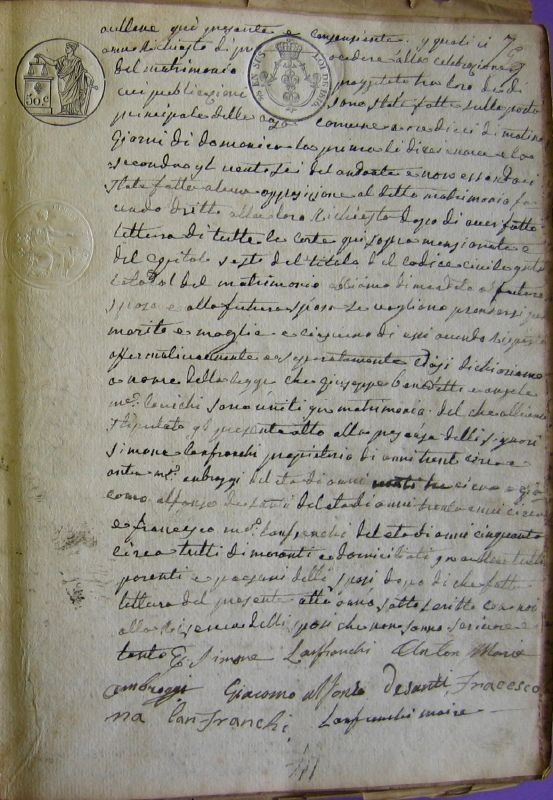 aullene qui presente e consenziente. i quali ci
anno richiesto di procedere alla celebrazione
del matrimonio progettato tra loro e di
cui publicazioni sono state fatte sulla porta
principale della casa comune a ore dieci di matina
Giorni di domenica la prima li dieci nove e la
secondo gl venti sei del andante e non essendoci
stata fatta alcuna opposizione al detto matrimonio fa
cendo dritto alla loro richiesta dopo di aver fatto
lettura di tutte le carte qui sopra menzionate e
del capitolo sesto del titolo del codice civile
del matrimonio abbiamo di mandato al futuro
sposo e alla futura sposa se vogliono prendersi per
marito e moglie e ciascuno di essi avendo risposto
affermativamente e separatamente dichiariamo
a nome della legge che giuseppe benedetti e angela
m.ª sono uniti in matrimonio del che abbiamo
stipulato gl presente atto alla presenza delli signori
simone Lanfranchi proprietario di anni trenti circa
anton m.ª ambroggi del età di anni circa gia
como alfonzo desanti del età di anni trenta circa
e francesco m.ª Lanfranchi del età di anni cinquanta
circa tutti dimoranti e domiciliati in aullene tutti
parenti e paesani delli sposi dopo di che fatt
lettura del presente atto anno sotto scritto con noi
alla riserva delli sposi che non sanno scrivere
Simone Lanfranchi Anton Maria
ambroggi Giacomo alfonso desanti Fracesco
ma Lanfranchi Lanfranchi maire
50 C